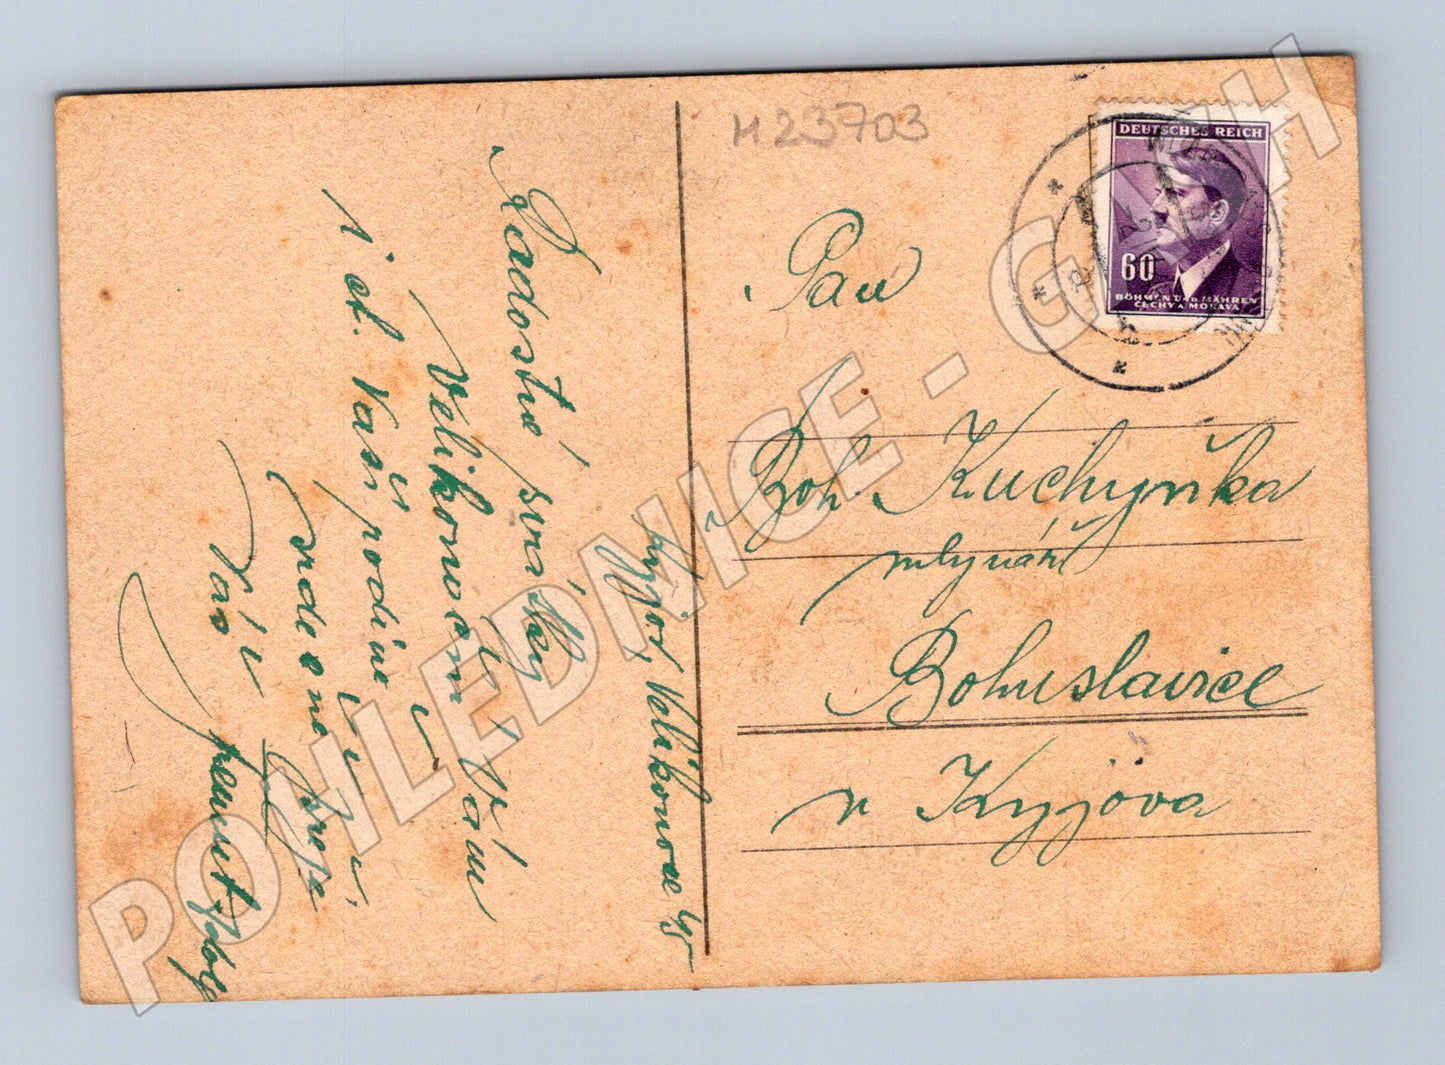 M 23703
DEUTSCHES REICH
60
BÖHMEN UND MÄHREN
ČECHY A MORAVA
Pan
Boh. Kuchyňka
mlynář
Bohuslavice
u Kyjova
Kyjov, Velikonoce 45
Radostné svátky
Velikonoční Vám
i ct. Vaší rodině
srdečně
Vás
POHLEDNICE - GALISH